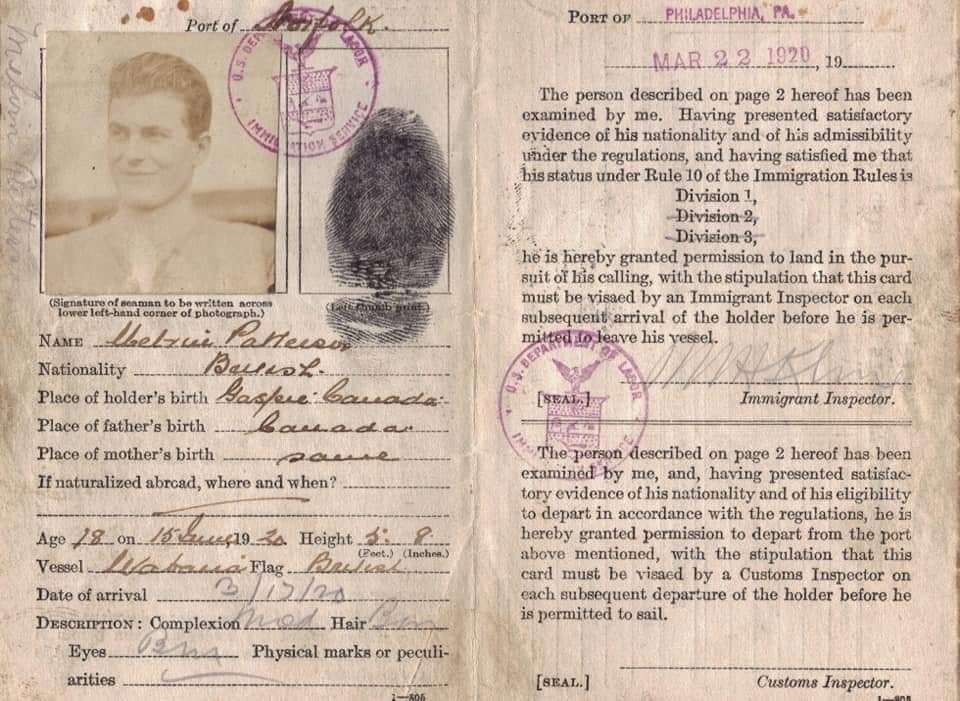 Port of Norfolk.
U.S. DEPARTMENT OF LABOR
IMMIGRATION SERVICE
(Signature of seaman to be written across
lower left-hand corner of photograph.)
(Left thumb print.)
NAME Melvin Patterson
Nationality British.
Place of holder's birth Gaspe Canada
Place of father's birth Canada
Place of mother's birth same
If naturalized abroad, where and when?
Age 18 on 15 19 20 Height 5 8
(Feet.) (Inches.)
Vessel Wabana Flag British
Date of arrival 3/17/20
DESCRIPTION: Complexion Med Hair Brn
Eyes Brn Physical marks or peculi-
arities
1—805
PORT OF PHILADELPHIA, PA.
MAR 22 1920, 19
The person described on page 2 hereof has been
examined by me. Having presented satisfactory
evidence of his nationality and of his admissibility
under the regulations, and having satisfied me that
his status under Rule 10 of the Immigration Rules is
Division 1,
Division 2,
Division 3,
he is hereby granted permission to land in the pur-
suit of his calling, with the stipulation that this card
must be visaed by an Immigrant Inspector on each
subsequent arrival of the holder before he is per-
mitted to leave his vessel.
U.S. DEPARTMENT OF LABOR
[SEAL.] Immigrant Inspector.
The person described on page 2 hereof has been
examined by me, and, having presented satisfac-
tory evidence of his nationality and of his eligibility
to depart in accordance with the regulations, he is
hereby granted permission to depart from the port
above mentioned, with the stipulation that this
card must be visaed by a Customs Inspector on
each subsequent departure of the holder before he
is permitted to sail.
[SEAL.] Customs Inspector.
1—805